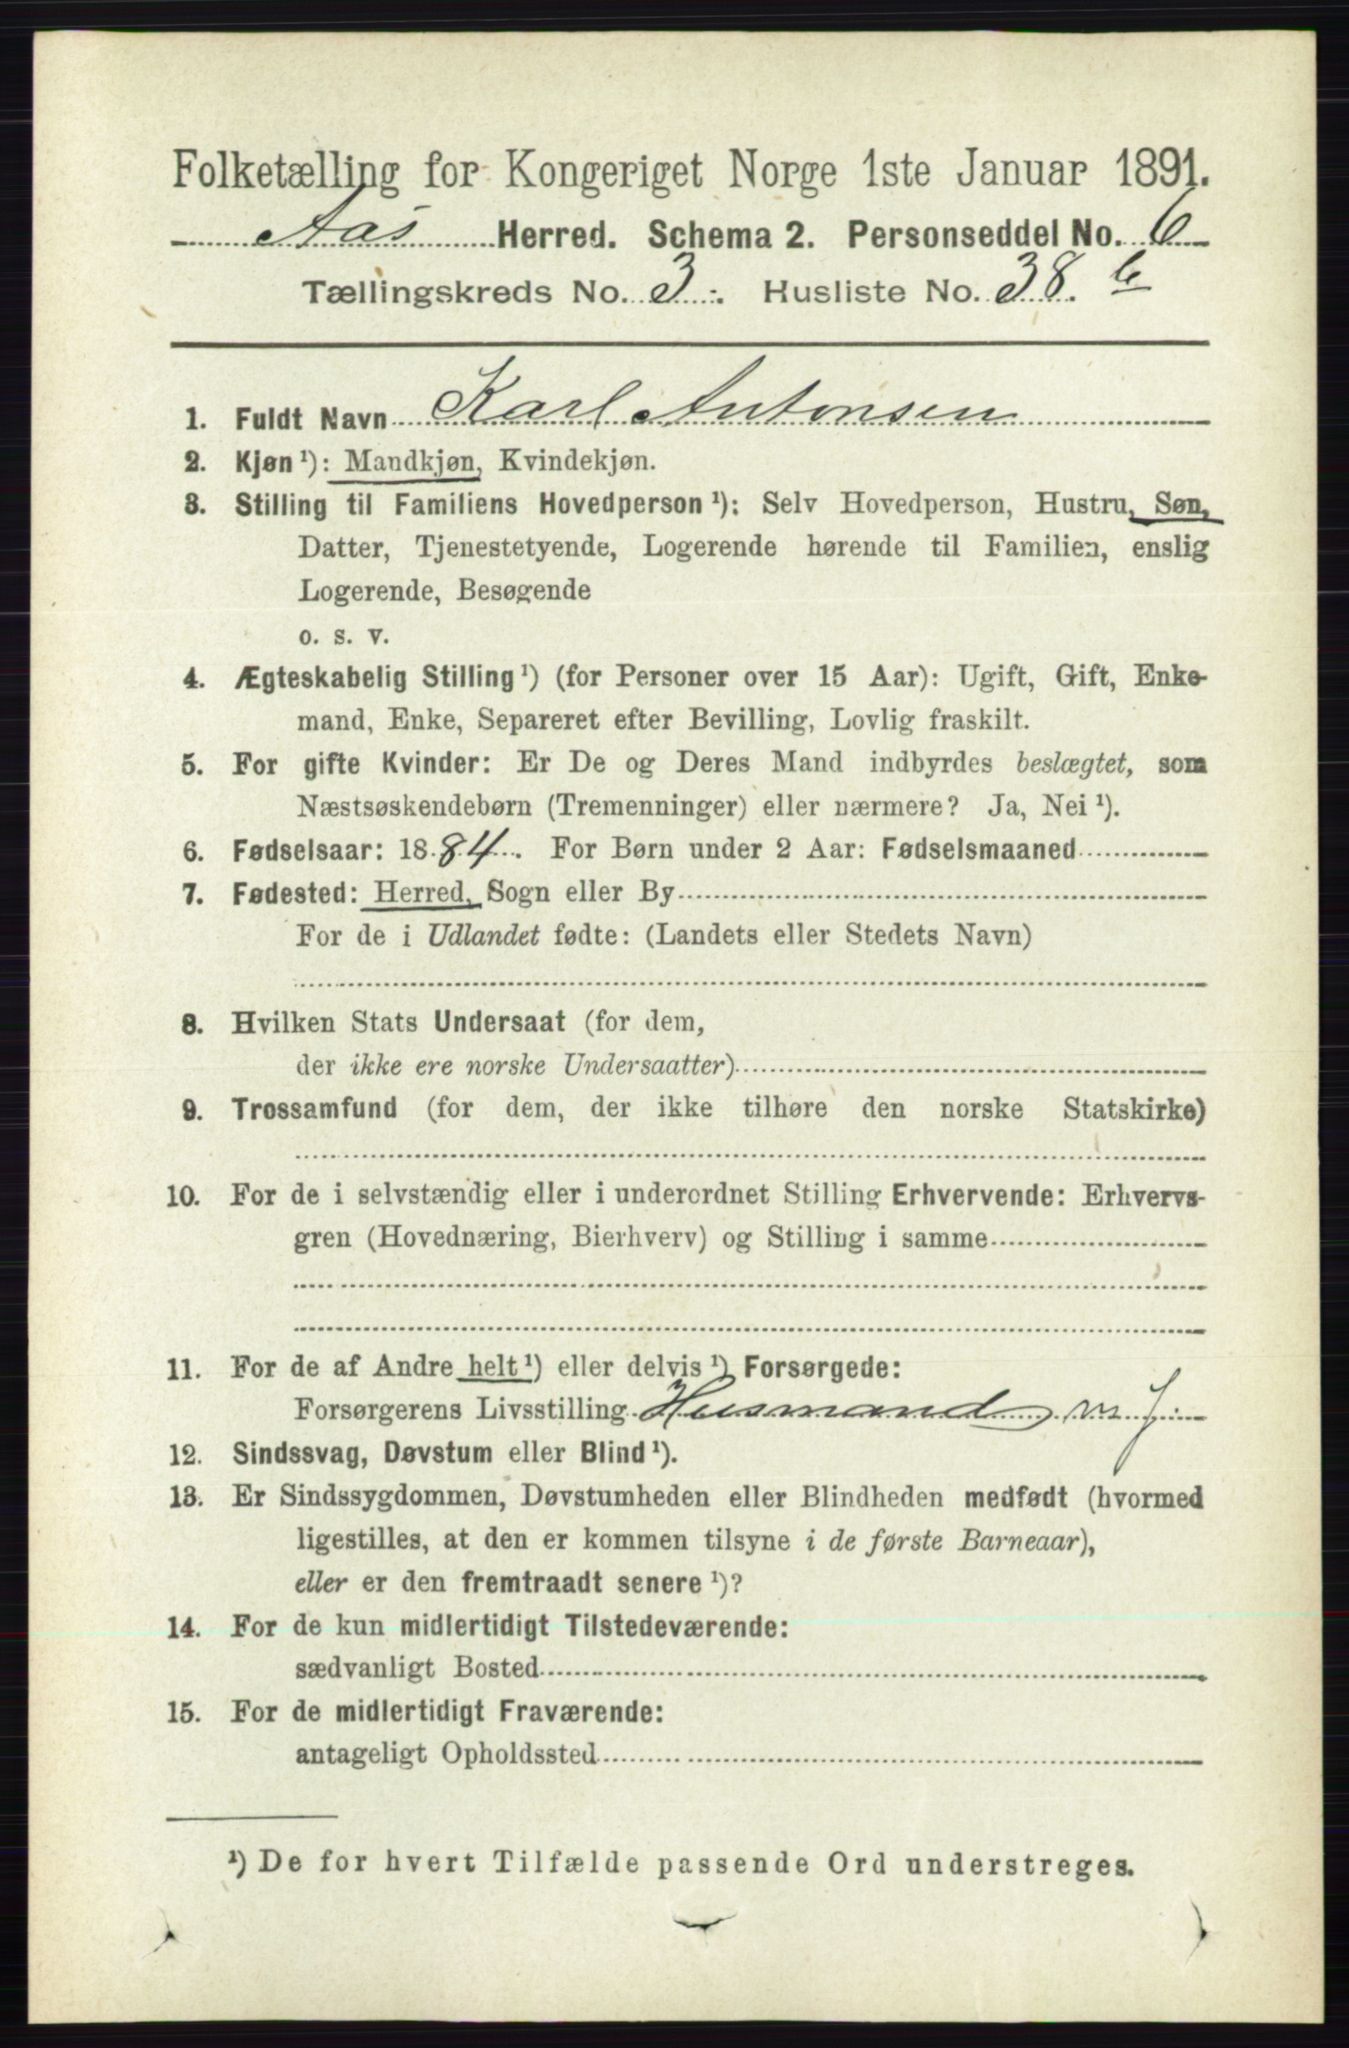 Folketælling for Kongeriget Norge 1ste Januar 1891.
Aas Herred. Schema 2. Personseddel No. 6
Tællingskreds No. 3. Husliste No. 38. b
1. Fuldt Navn Karl Antonsen
2. Kjøn ¹): Mandkjøn, Kvindekjøn.
3. Stilling til Familiens Hovedperson ¹): Selv Hovedperson, Hustru, Søn,
Datter, Tjenestetyende, Logerende hørende til Familien, enslig
Logerende, Besøgende
o. s. v.
4. Ægteskabelig Stilling ¹) (for Personer over 15 Aar): Ugift, Gift, Enke-
mand, Enke, Separeret efter Bevilling, Lovlig fraskilt.
5. For gifte Kvinder: Er De og Deres Mand indbyrdes beslægtet, som
Næstsøskendebørn (Tremenninger) eller nærmere? Ja, Nei ¹).
6. Fødselsaar: 1884. For Børn under 2 Aar: Fødselsmaaned
7. Fødested: Herred, Sogn eller By
For de i Udlandet fødte: (Landets eller Stedets Navn)
8. Hvilken Stats Undersaat (for dem,
der ikke ere norske Undersaatter)
9. Trossamfund (for dem, der ikke tilhøre den norske Statskirke)
10. For de i selvstændig eller i underordnet Stilling Erhvervende: Erhvervs-
gren (Hovednæring, Bierhverv) og Stilling i samme
11. For de af Andre helt ¹) eller delvis ¹) Forsørgede:
Forsørgerens Livsstilling Husmand m. J.
12. Sindssvag, Døvstum eller Blind ¹).
13. Er Sindssygdommen, Døvstumheden eller Blindheden medfødt (hvormed
ligestilles, at den er kommen tilsyne i de første Barneaar),
eller er den fremtraadt senere ¹)?
14. For de kun midlertidigt Tilstedeværende:
sædvanligt Bosted
15. For de midlertidigt Fraværende:
antageligt Opholdssted
¹) De for hvert Tilfælde passende Ord understreges.